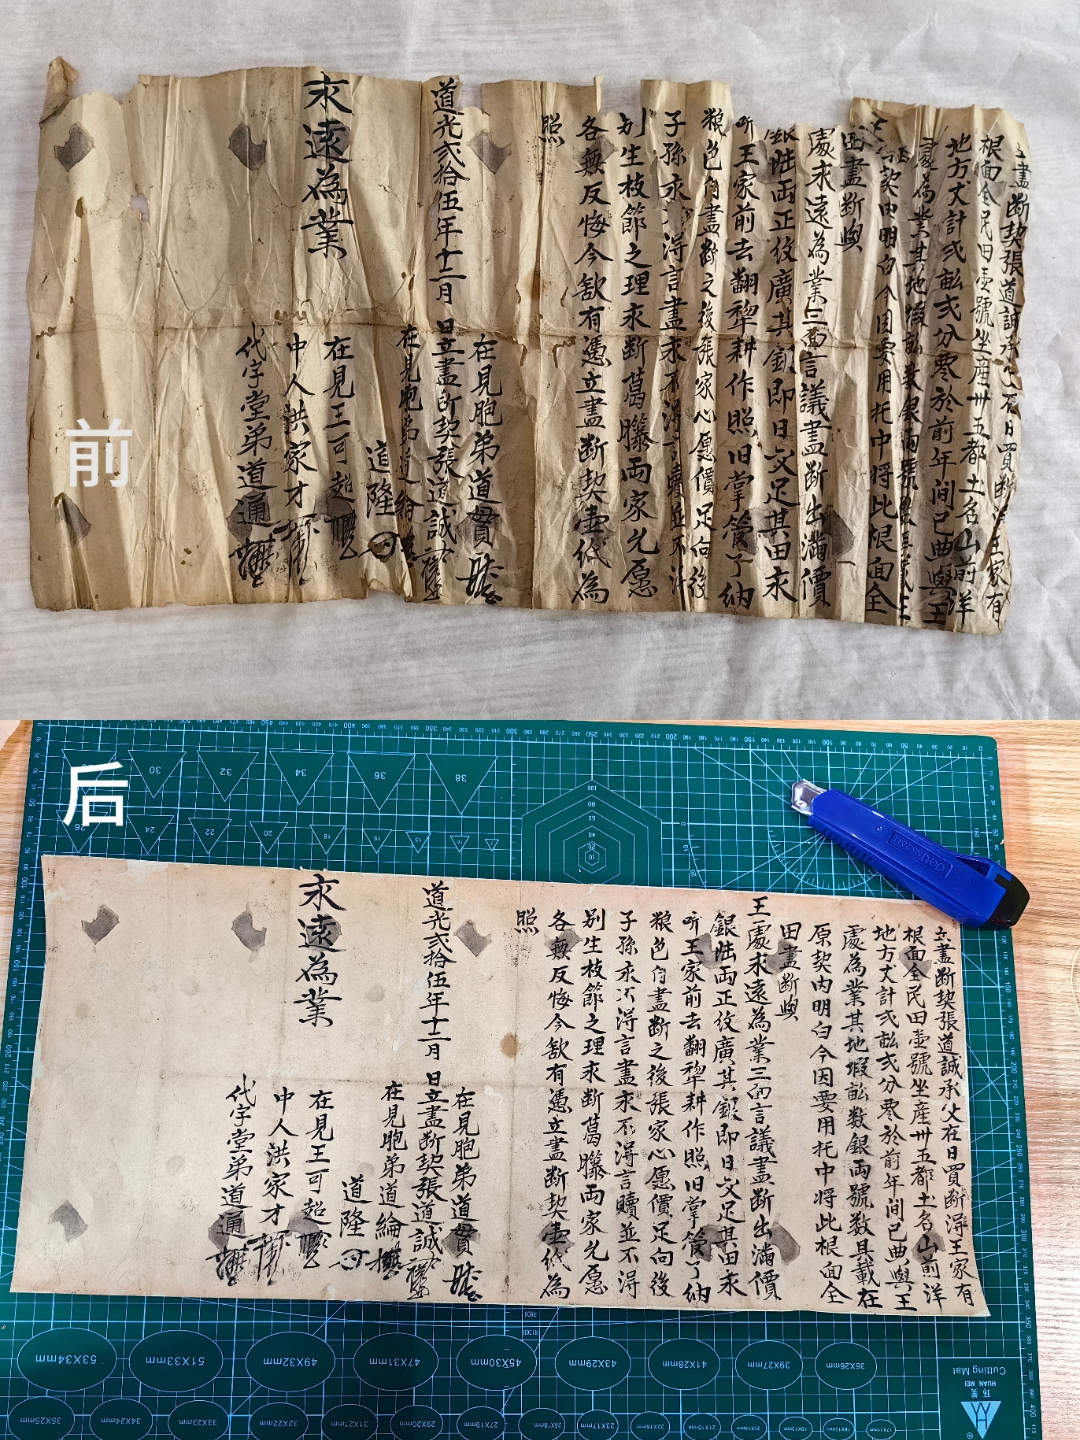 前
立盡断契張道誠承父在日買断淂王家有
根面全民田壹號坐産卅五都土名山前洋
地方丈計弍畝弍分零於前年间已曲與王
處為業其地塅畝数銀両號数具載在
原契内明白今因要用托中将此根面全
田盡断與
王處永遠為業三面言議盡断出滿價
銀陆両正纹廣其銀即日交足其田永
听王家前去翻犂耕作照旧掌管了纳
粮色自盡断之後張家心愿價足向後
子孫永不淂言盡永不淂言贖並不淂
别生枝節之理永断葛籐両家允愿
各無反悔今欲有憑立盡断契壹纸為
照
道光弍拾伍年十二月 日立盡断契張道誠
在見胞弟道貫
在見胞弟道綸
道隆
在見王可超
中人洪家才
代字堂弟道通
永遠為業
后
30
32
34
36
38
24
22
20
53X34mm
51X33mm
49X32mm
47X31mm
45X30mm
43X29mm
41X28mm
39X27mm
36X26mm
35X25mm
34X24mm
33X23mm
32X22mm
31X21mm
29X20mm
27X19mm
Cutting Mat
HUAN MEI